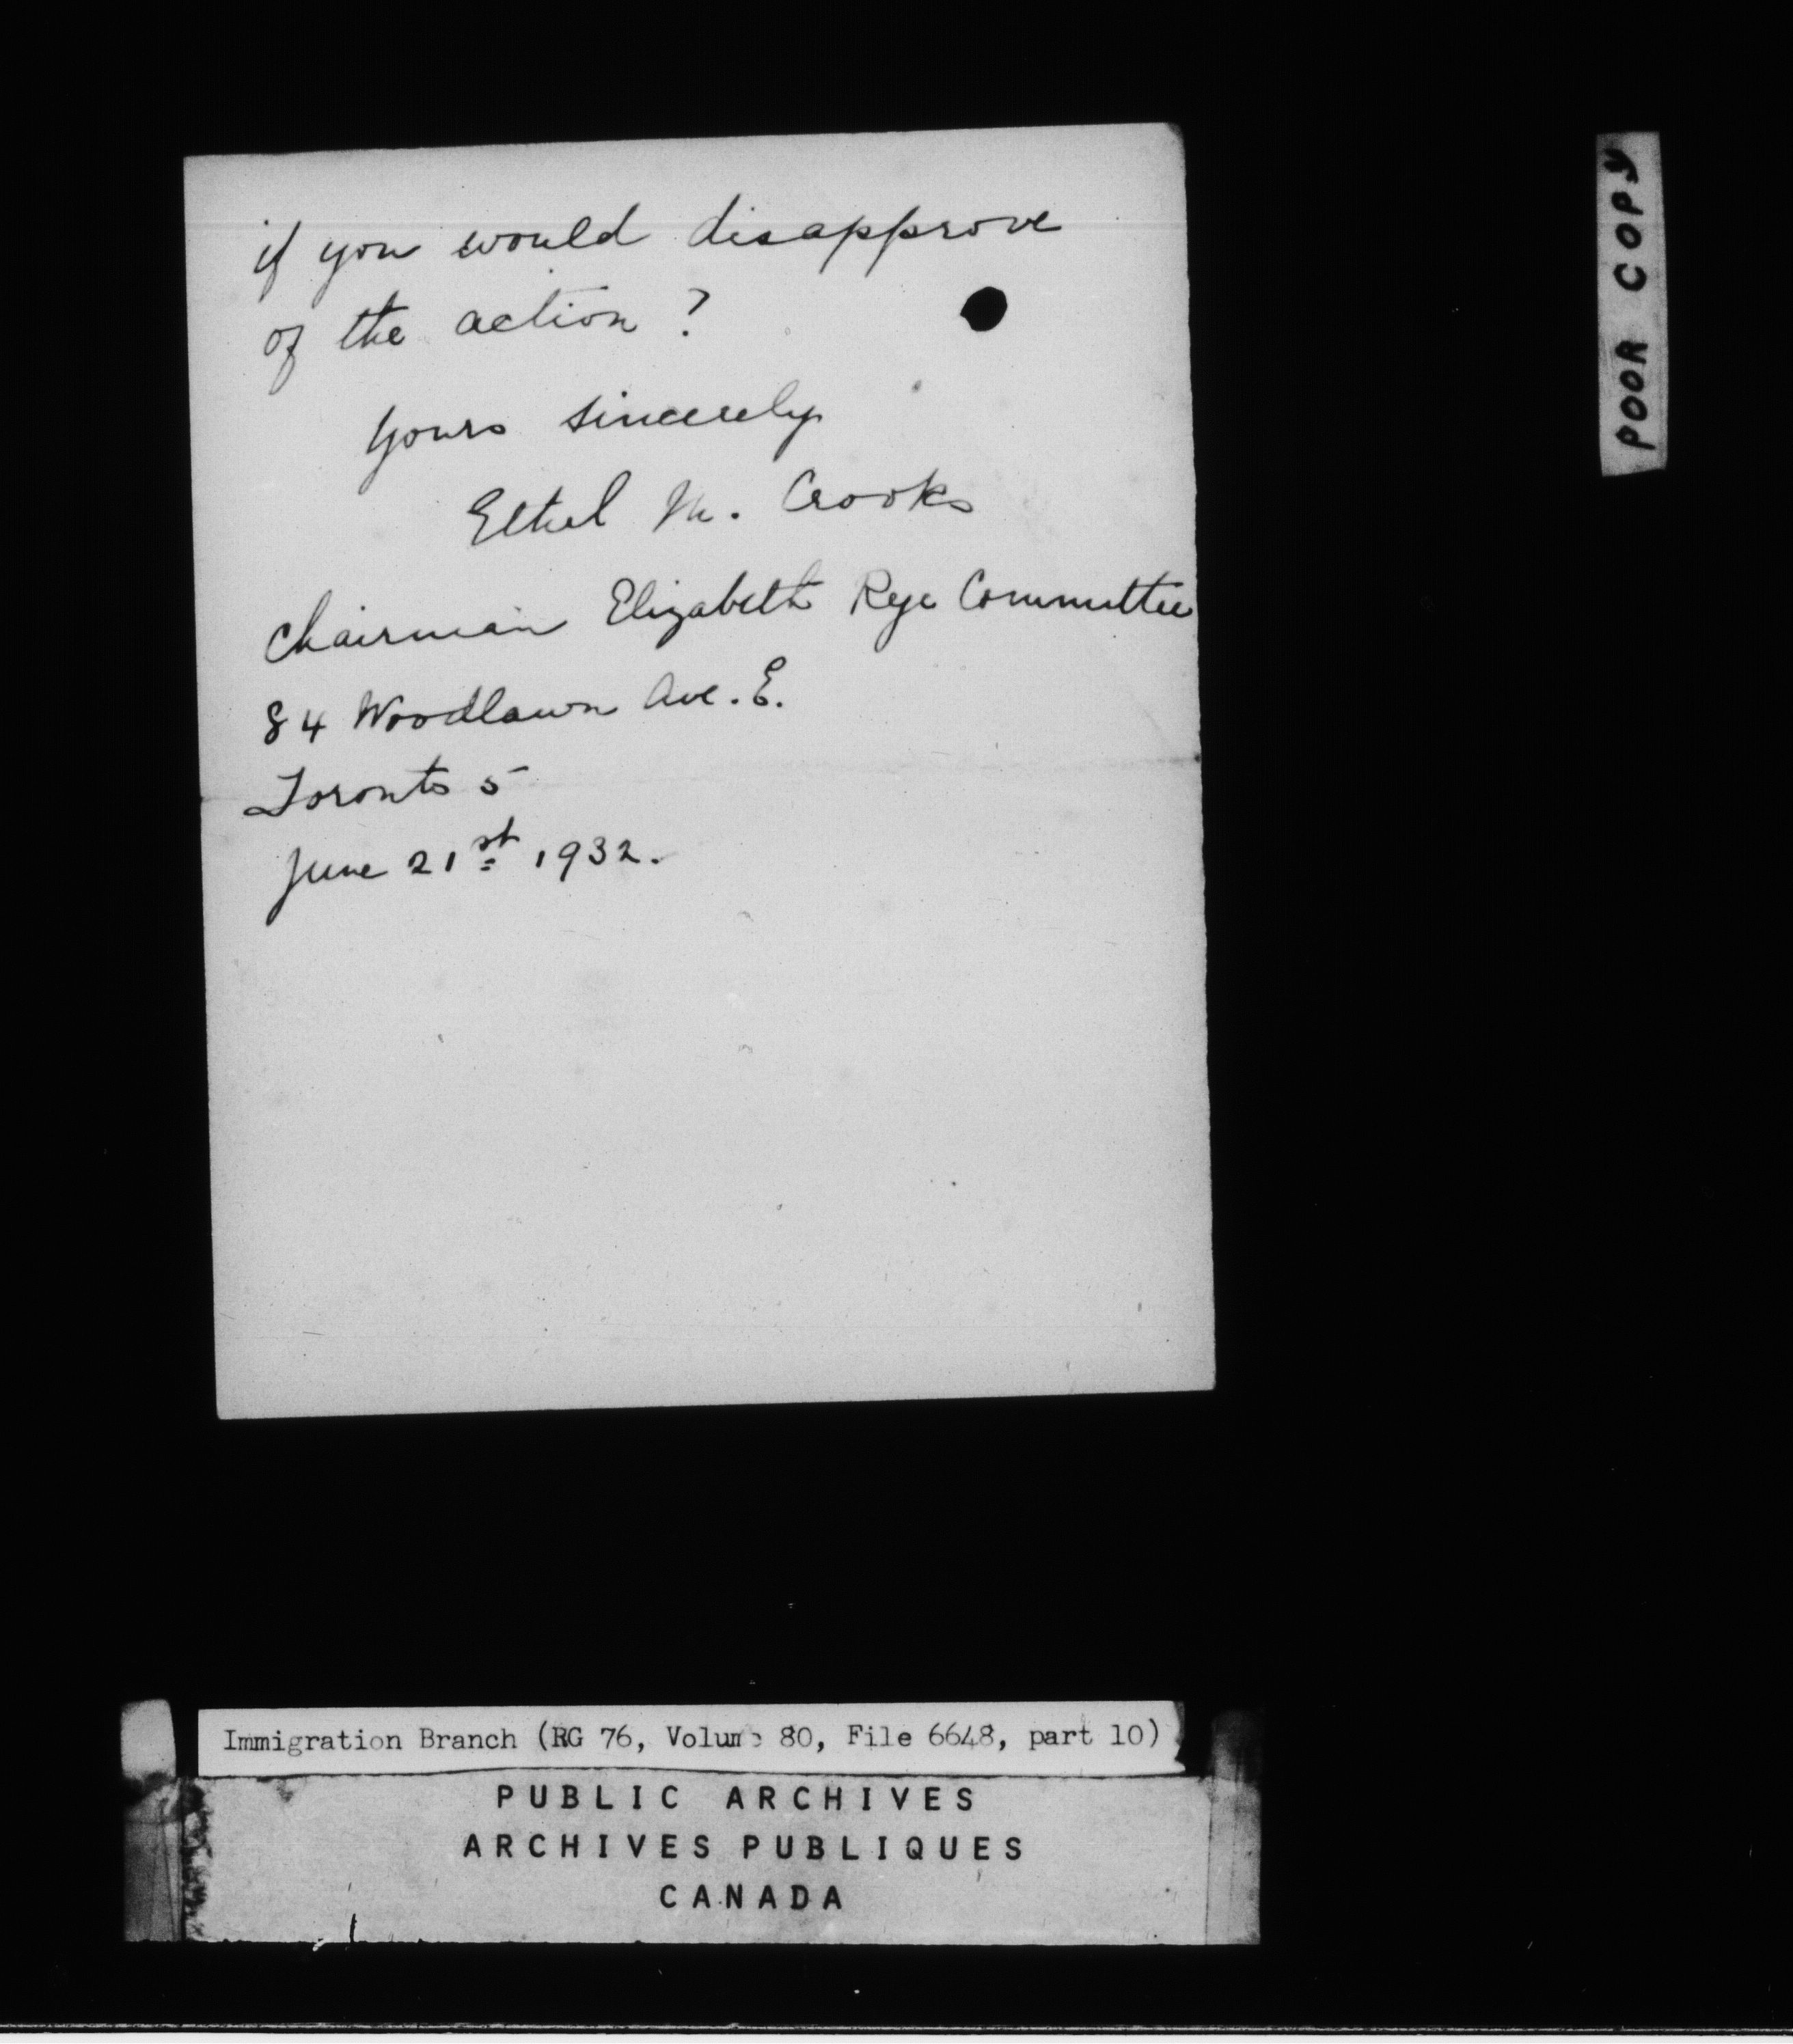 if you would disapprove
of the action ?
Yours sincerely
Ethel M. Crooks
Chairman Elizabeth Rye Committee
84 Woodlawn Ave. E.
Toronto 5
June 21st 1932.
POOR COPY
Immigration Branch (RG 76, Volume 80, File 6648, part 10)
PUBLIC ARCHIVES
ARCHIVES PUBLIQUES
CANADA